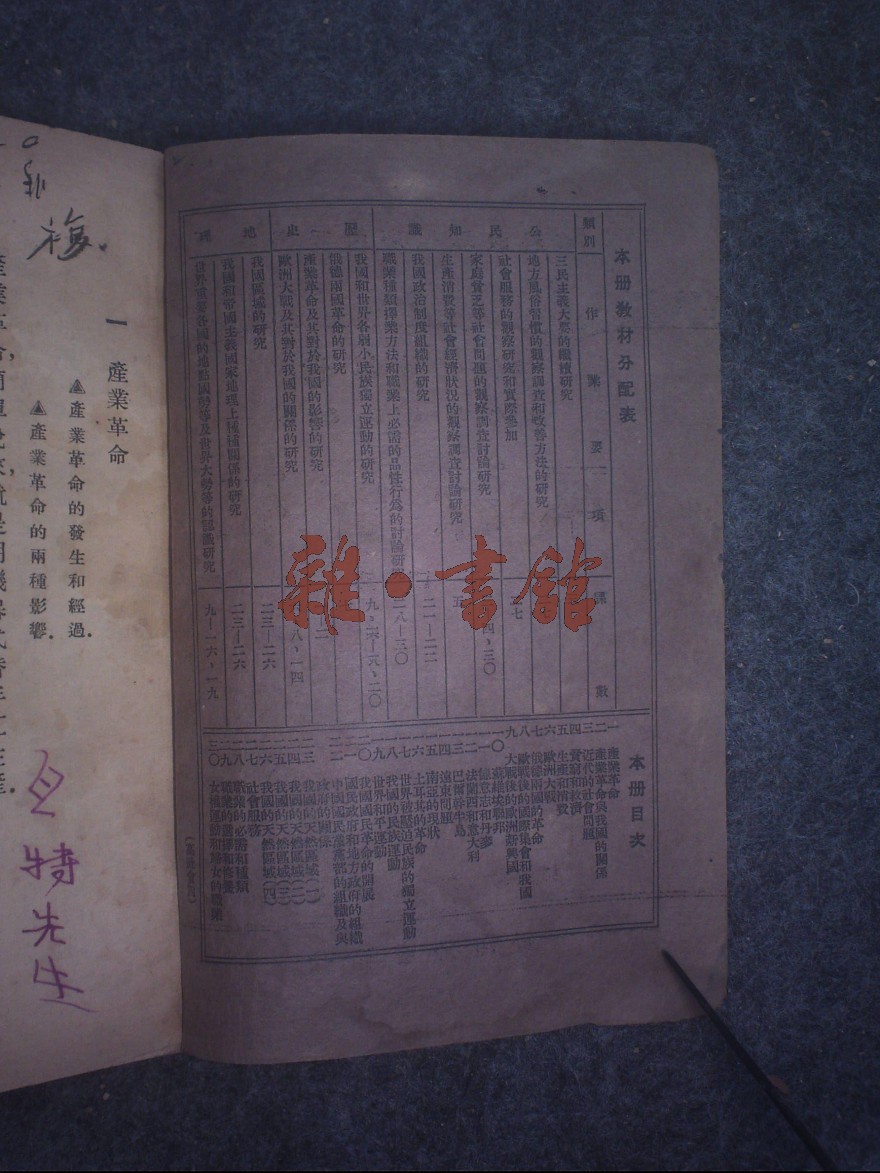 本册教材分配表
類別
作業要項
課數
公民知識
三民主義大要的繼續研究
地方風俗習慣的觀察調查和改善方法的研究
七
社會服務的觀察研究和實際參加
家庭貧乏等社會問題的觀察調查討論研究
生產消費等社會經濟狀況的觀察調查討論研究
五
我國政治制度組織的研究
二一—二二
職業種類擇業方法和職業上必需的品性行爲的討論研
二八—三〇
歷史
我國和世界各弱小民族獨立運動的研究
俄德兩國革命的研究
產業革命及其對於我國的影響的研究
歐洲大戰及其對於我國的關係的研究
八,一四
地理
我國區域的研究
二三—二六
我國和帝國主義國家地理上種種關係的研究
二三—二六
世界重要各國的地點國勢等及世界大勢等的認識研究
九—一六,一九
本册目次
一 產業革命
二 產業革命與我國的關係
三 近代的社會問題
四 貧窮和救濟
五 生產和消費
六 歐洲大戰
七 俄德兩國的革命
八 歐戰後的國際集會和我國
九 大戰後的歐洲新興國
一〇 蘇維埃聯邦
一一 德意志和丹麥
一二 法蘭西和意大利
一三 巴爾幹半島
一四 遠東問題
一五 南亞的現狀
一六 土耳其的革命
一七 世界被壓迫民族的獨立運動
一八 我國的民族運動
一九 世界和平運動
二〇 我國國民革命的開展
二一 國民政府和地方政府的組織
二二 中國國民黨黨部的組織及與政府的關係
二三 我國的天然區域(一)
二四 我國的天然區域(二)
二五 我國的天然區域(三)
二六 我國的天然區域(四)
二七 社會服務
二八 職業的必需和種類
二九 職業的選擇和修養
三〇 女權運動和婦女的職業
雜·書館
複
一 產業革命
▲產業革命的發生和經過.
▲產業革命的兩種影響.
特先生